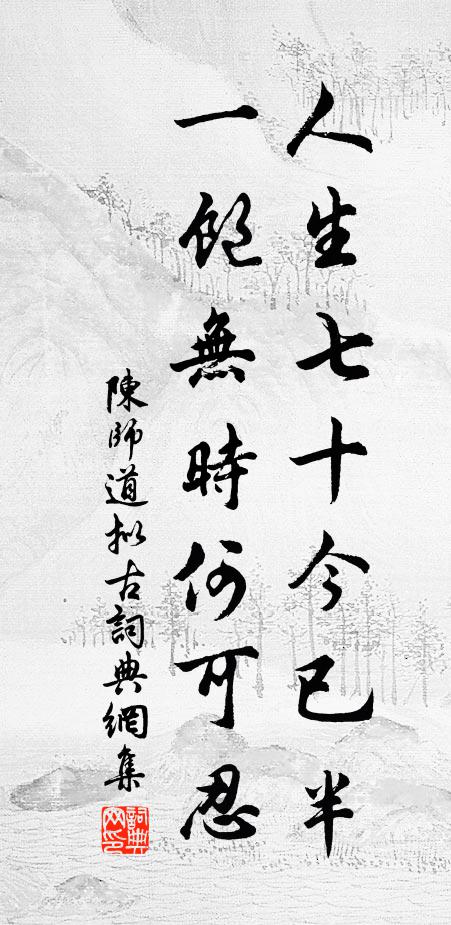 人生七十今已半
一飽無時何可忍
陳師道拟古詞典網集
詞典网印